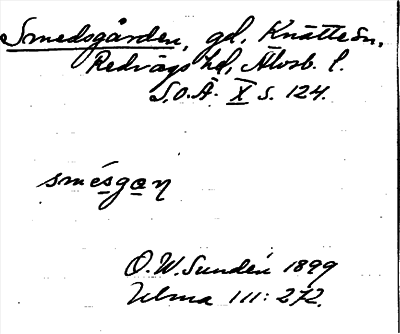 Smedsgården, gd, Knätte sn,
Redvägs hd, Älvsb. l.
S.O.Ä. X s. 124.
smésgaƞ
O. W. Sundén 1899
Ulma 111: 272.